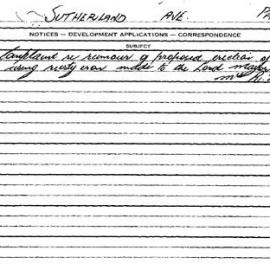 SUTHERLAND AVE. PA
NOTICES — DEVELOPMENT APPLICATIONS — CORRESPONDENCE
SUBJECT
Complaint re rumour of proposed erection of
using made to the Lord Mayor